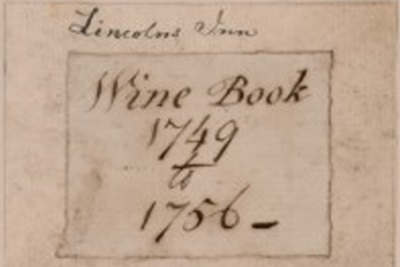 Lincolns Inn
Wine Book
1749
to
1756 -